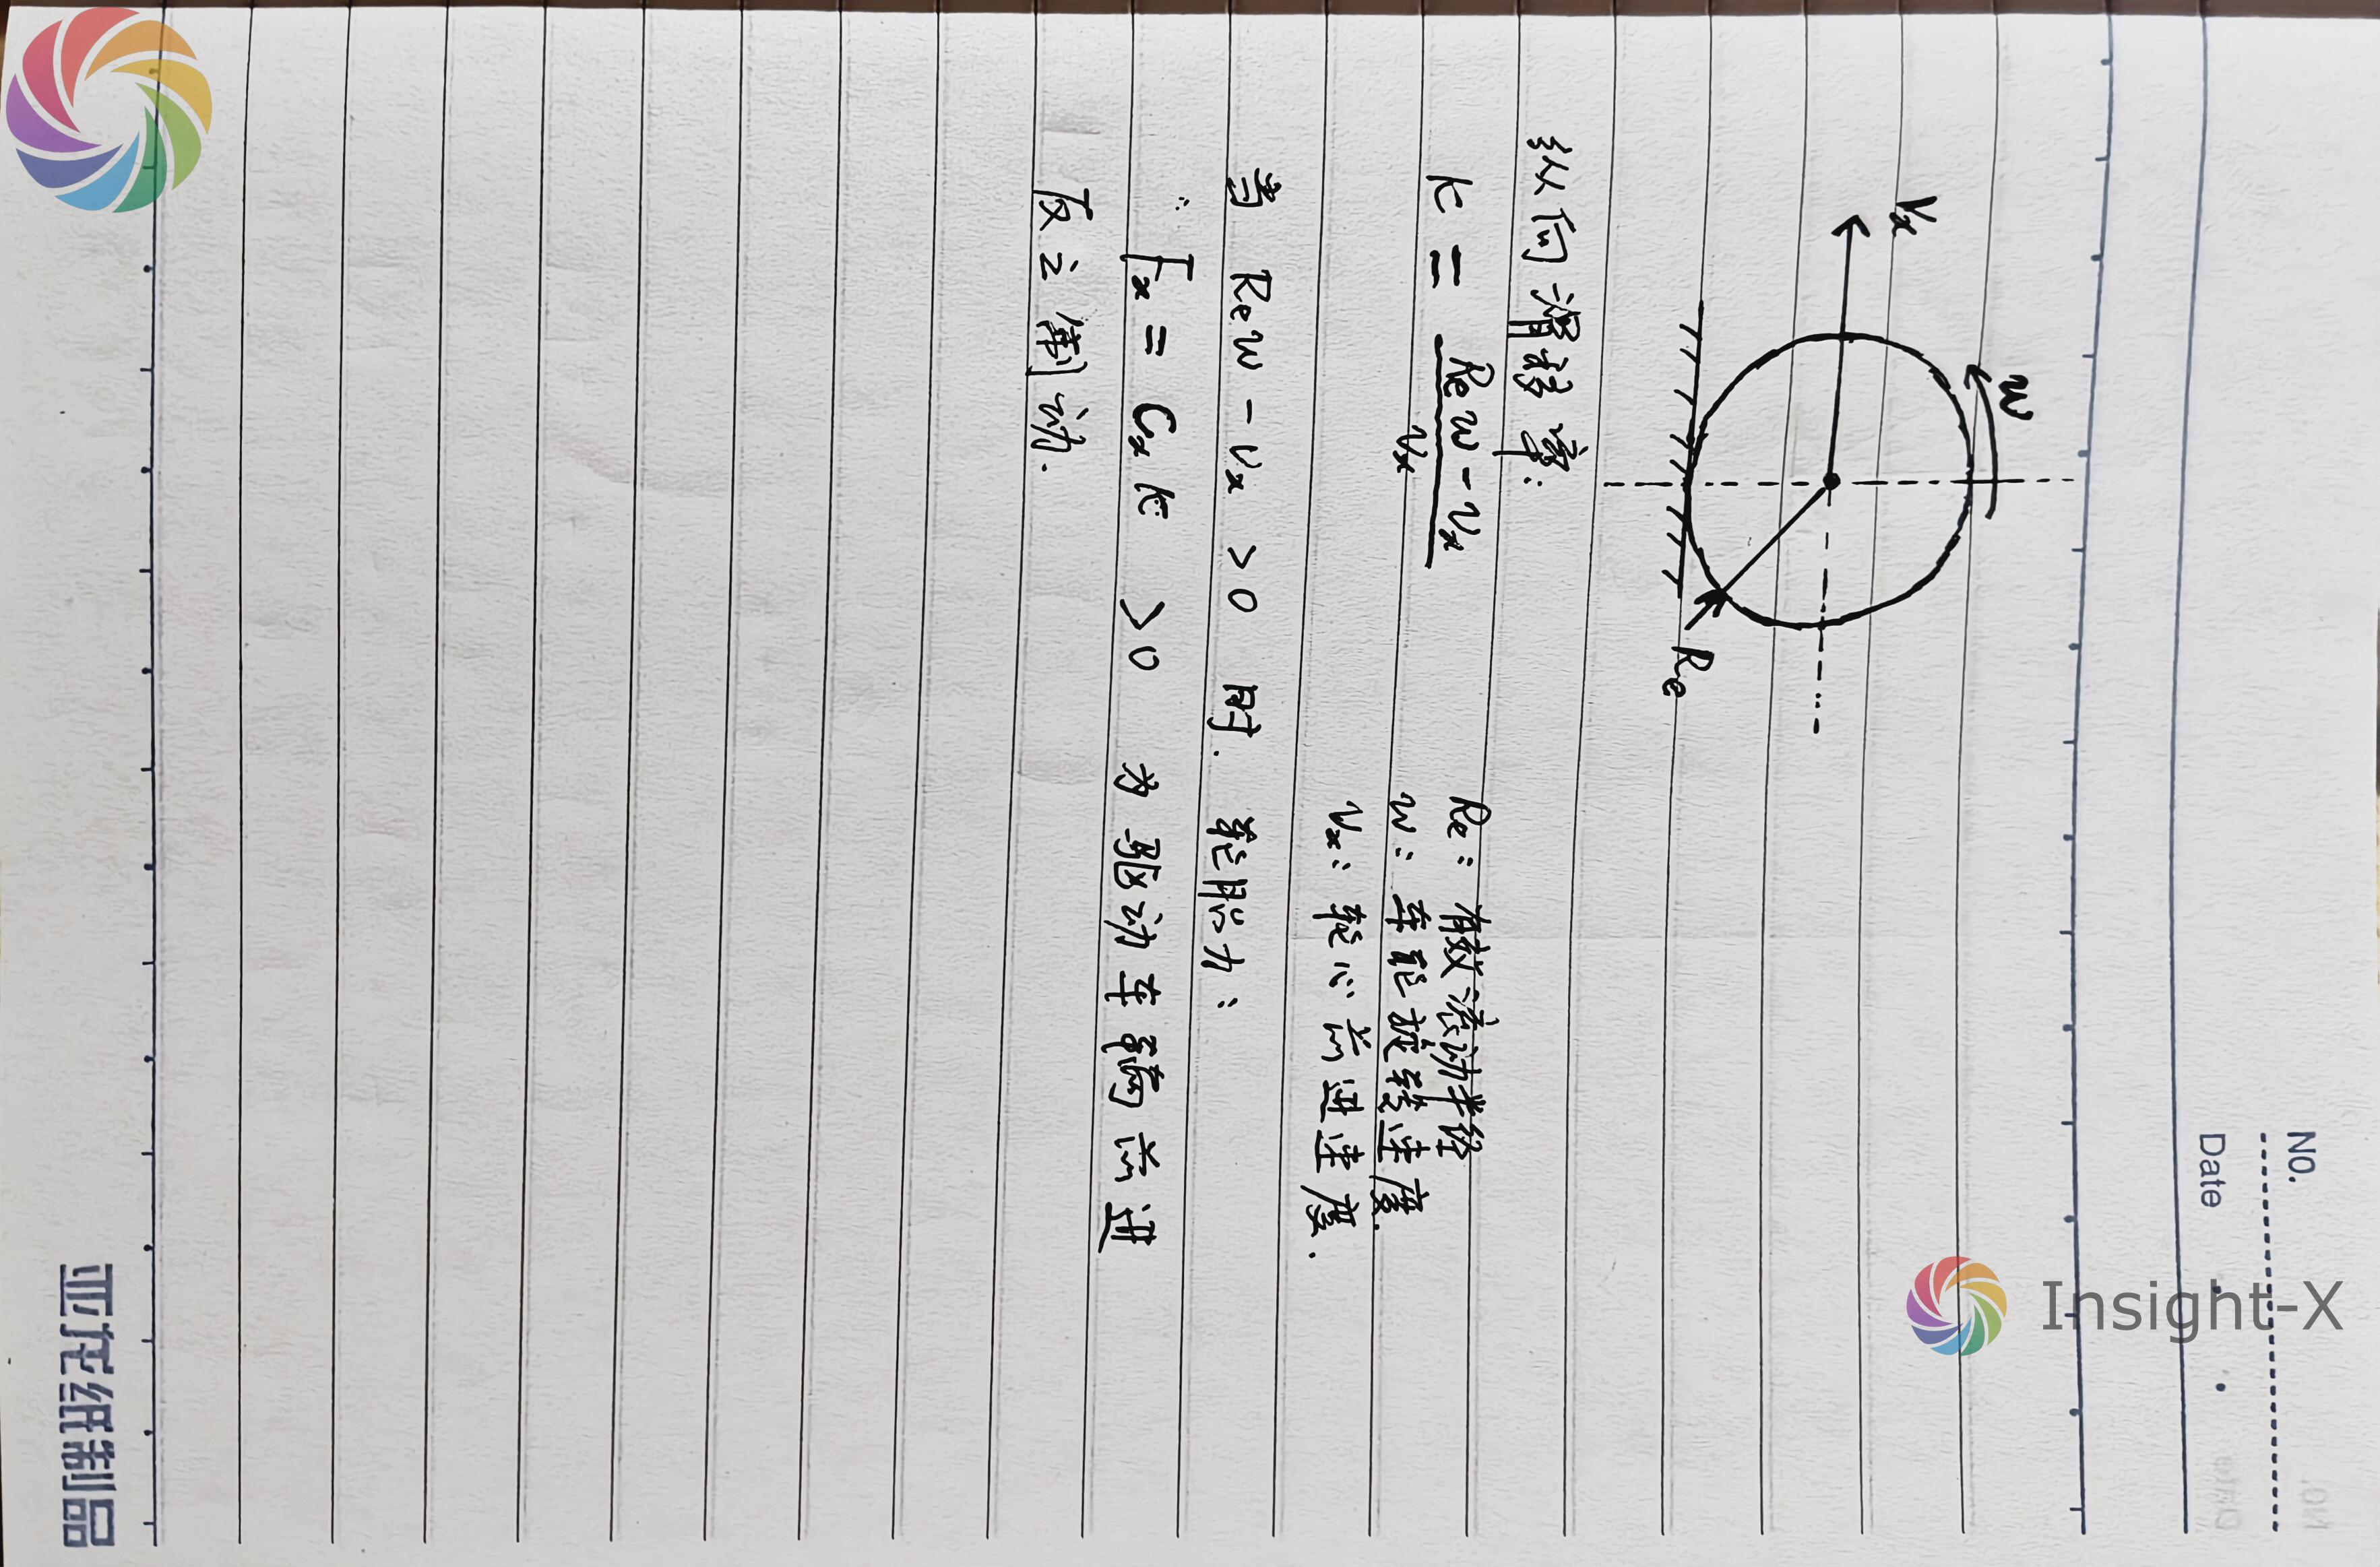 NO.
Date
Vx
w
Re
纵向滑移率:
K = Rew - vx
vx
Re: 有效滚动半径
w: 车轮旋转速度.
vx: 轮心前进速度.
当 Rew - vx > 0 时. 轮胎力:
∴ Fx = Cx K > 0 为驱动车辆前进
反之制动.
亚龙纸制品
Insight-X